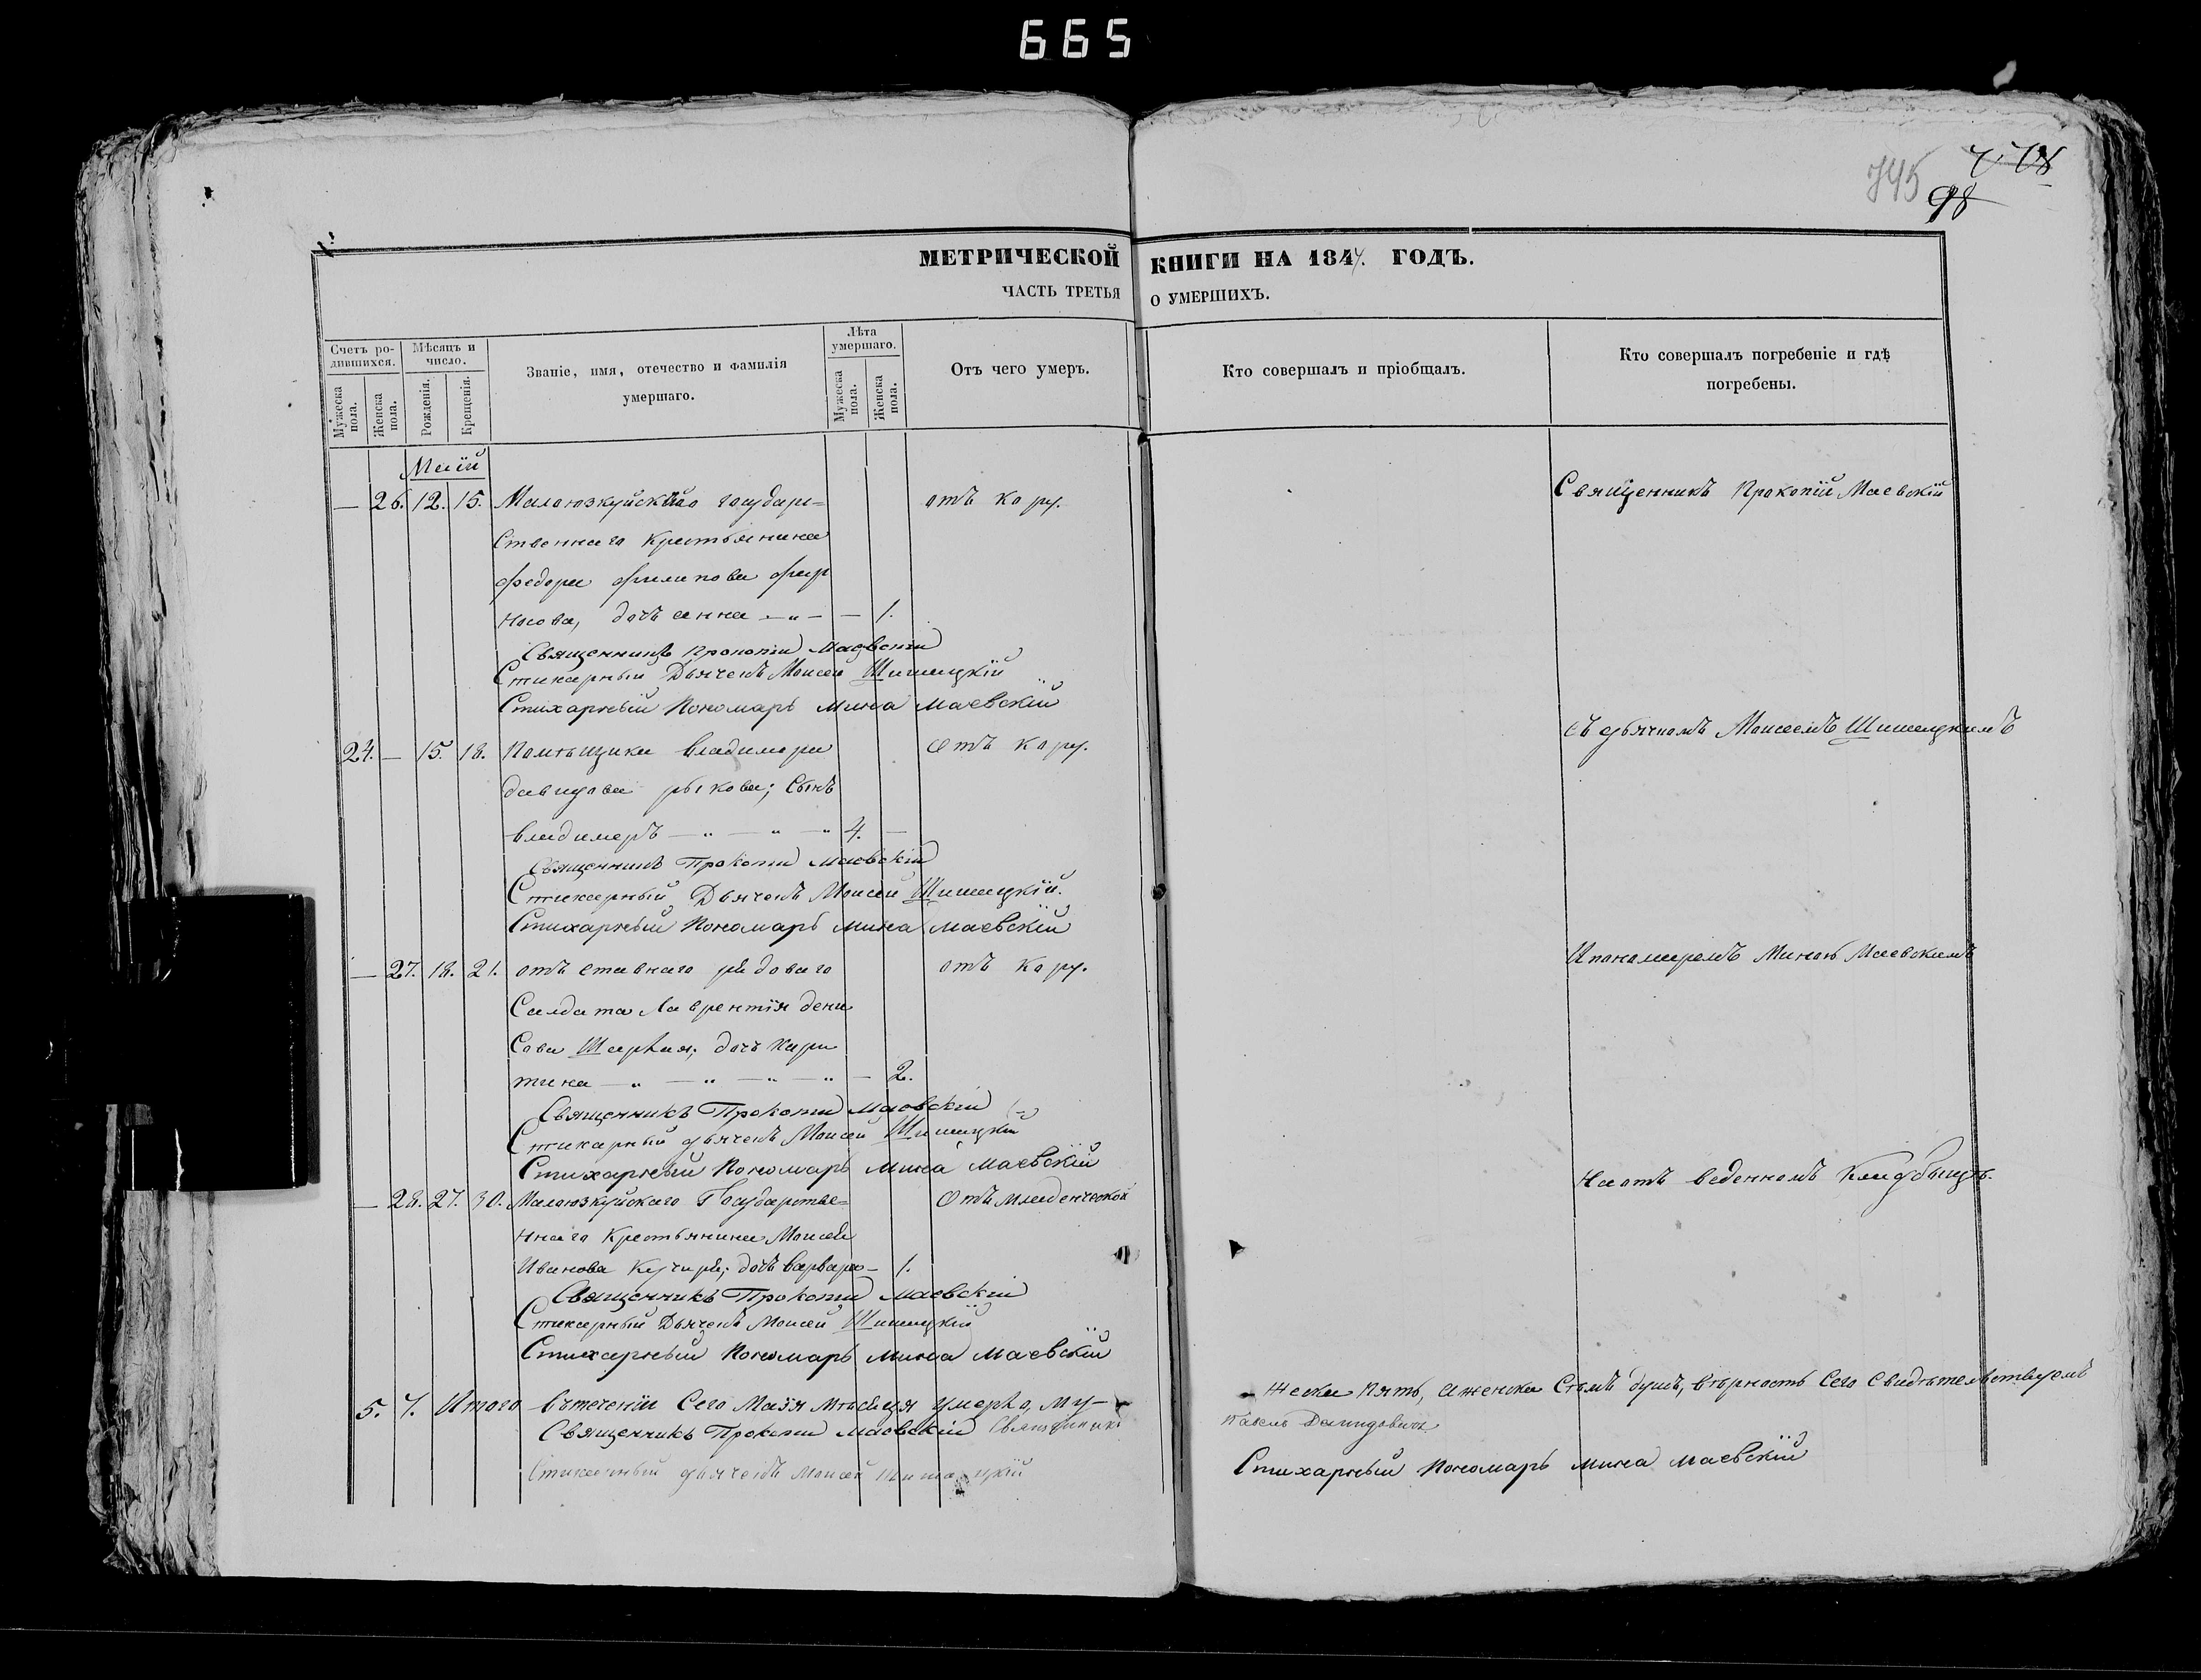 665
745
98
МЕТРИЧЕСКОЙ КНИГИ НА 1844. ГОДЪ.
ЧАСТЬ ТРЕТЬЯ О УМЕРШИХЪ.
Счетъ родившихся.
Мужеска пола.
Женска пола.
Мѣсяцъ и число.
Рожденія.
Крещенія.
Званіе, имя, отечество и фамилія
умершаго.
Лѣта умершаго.
Мужеска пола.
Женска пола.
Отъ чего умеръ.
Кто совершалъ и пріобщалъ.
Кто совершалъ погребеніе и гдѣ
погребены.
Маій
— 26. 12. 15. Малоюзкуйскаго государ= отъ кору. Священникъ Прокопій Маевскій
ственнаго крестьянина
Федора Филипова Фир
носова, дочь анна — — 1.
Священникъ Прокопій Маевскій
Стихарный Дьячекъ Моисей Шишацкій
Стихарный Пономарь Мина Маевскій
съ дьячкомъ Моисеемъ Шишацкимъ
24. — 15. 18. Помѣщика владимера отъ кору.
давидова рыкова; сынъ
владимеръ — — — 4. —
Священникъ Прокопій Маевскій
Стихарный Дьячекъ Моисей Шишацкій.
Стихарный Пономарь Мина Маевскій
И понамаремъ Миною Маевскимъ
— 27. 18. 21. отъ ставнаго рядоваго отъ кору.
Салдата Лаврентія дени
сова Шаркая; дочь Хари
тина — — — — — 2.
Священникъ Прокопій Маевскій
Стихарный дьячекъ Моисей Шишацкій
Стихарный Пономарь Мина Маевскій
На отъ веденномъ кладбищѣ.
— 28. 27. 30. Малоюзкуйскаго Государстве= Отъ младенческой
ннаго крестьянина Моисея
Иванова Кучиря; дочь варвара — 1.
Священникъ Прокопій Маевскій
Стихарный Дьячекъ Моисей Шишацкій
Стихарный Пономарь Мина Маевскій
5. 7. Итого втеченіи Сего Маія Мѣсяца умерло, му-
жеска пять, а женска Сѣмь душъ, вѣрность Сего Свидѣтельствуемъ
Священникъ Прокопій Маевскій Священникъ
Павелъ Демидовичъ
Стихарный дьячекъ Моисей Шишацкій
Стихарный Пономарь Мина Маевскій